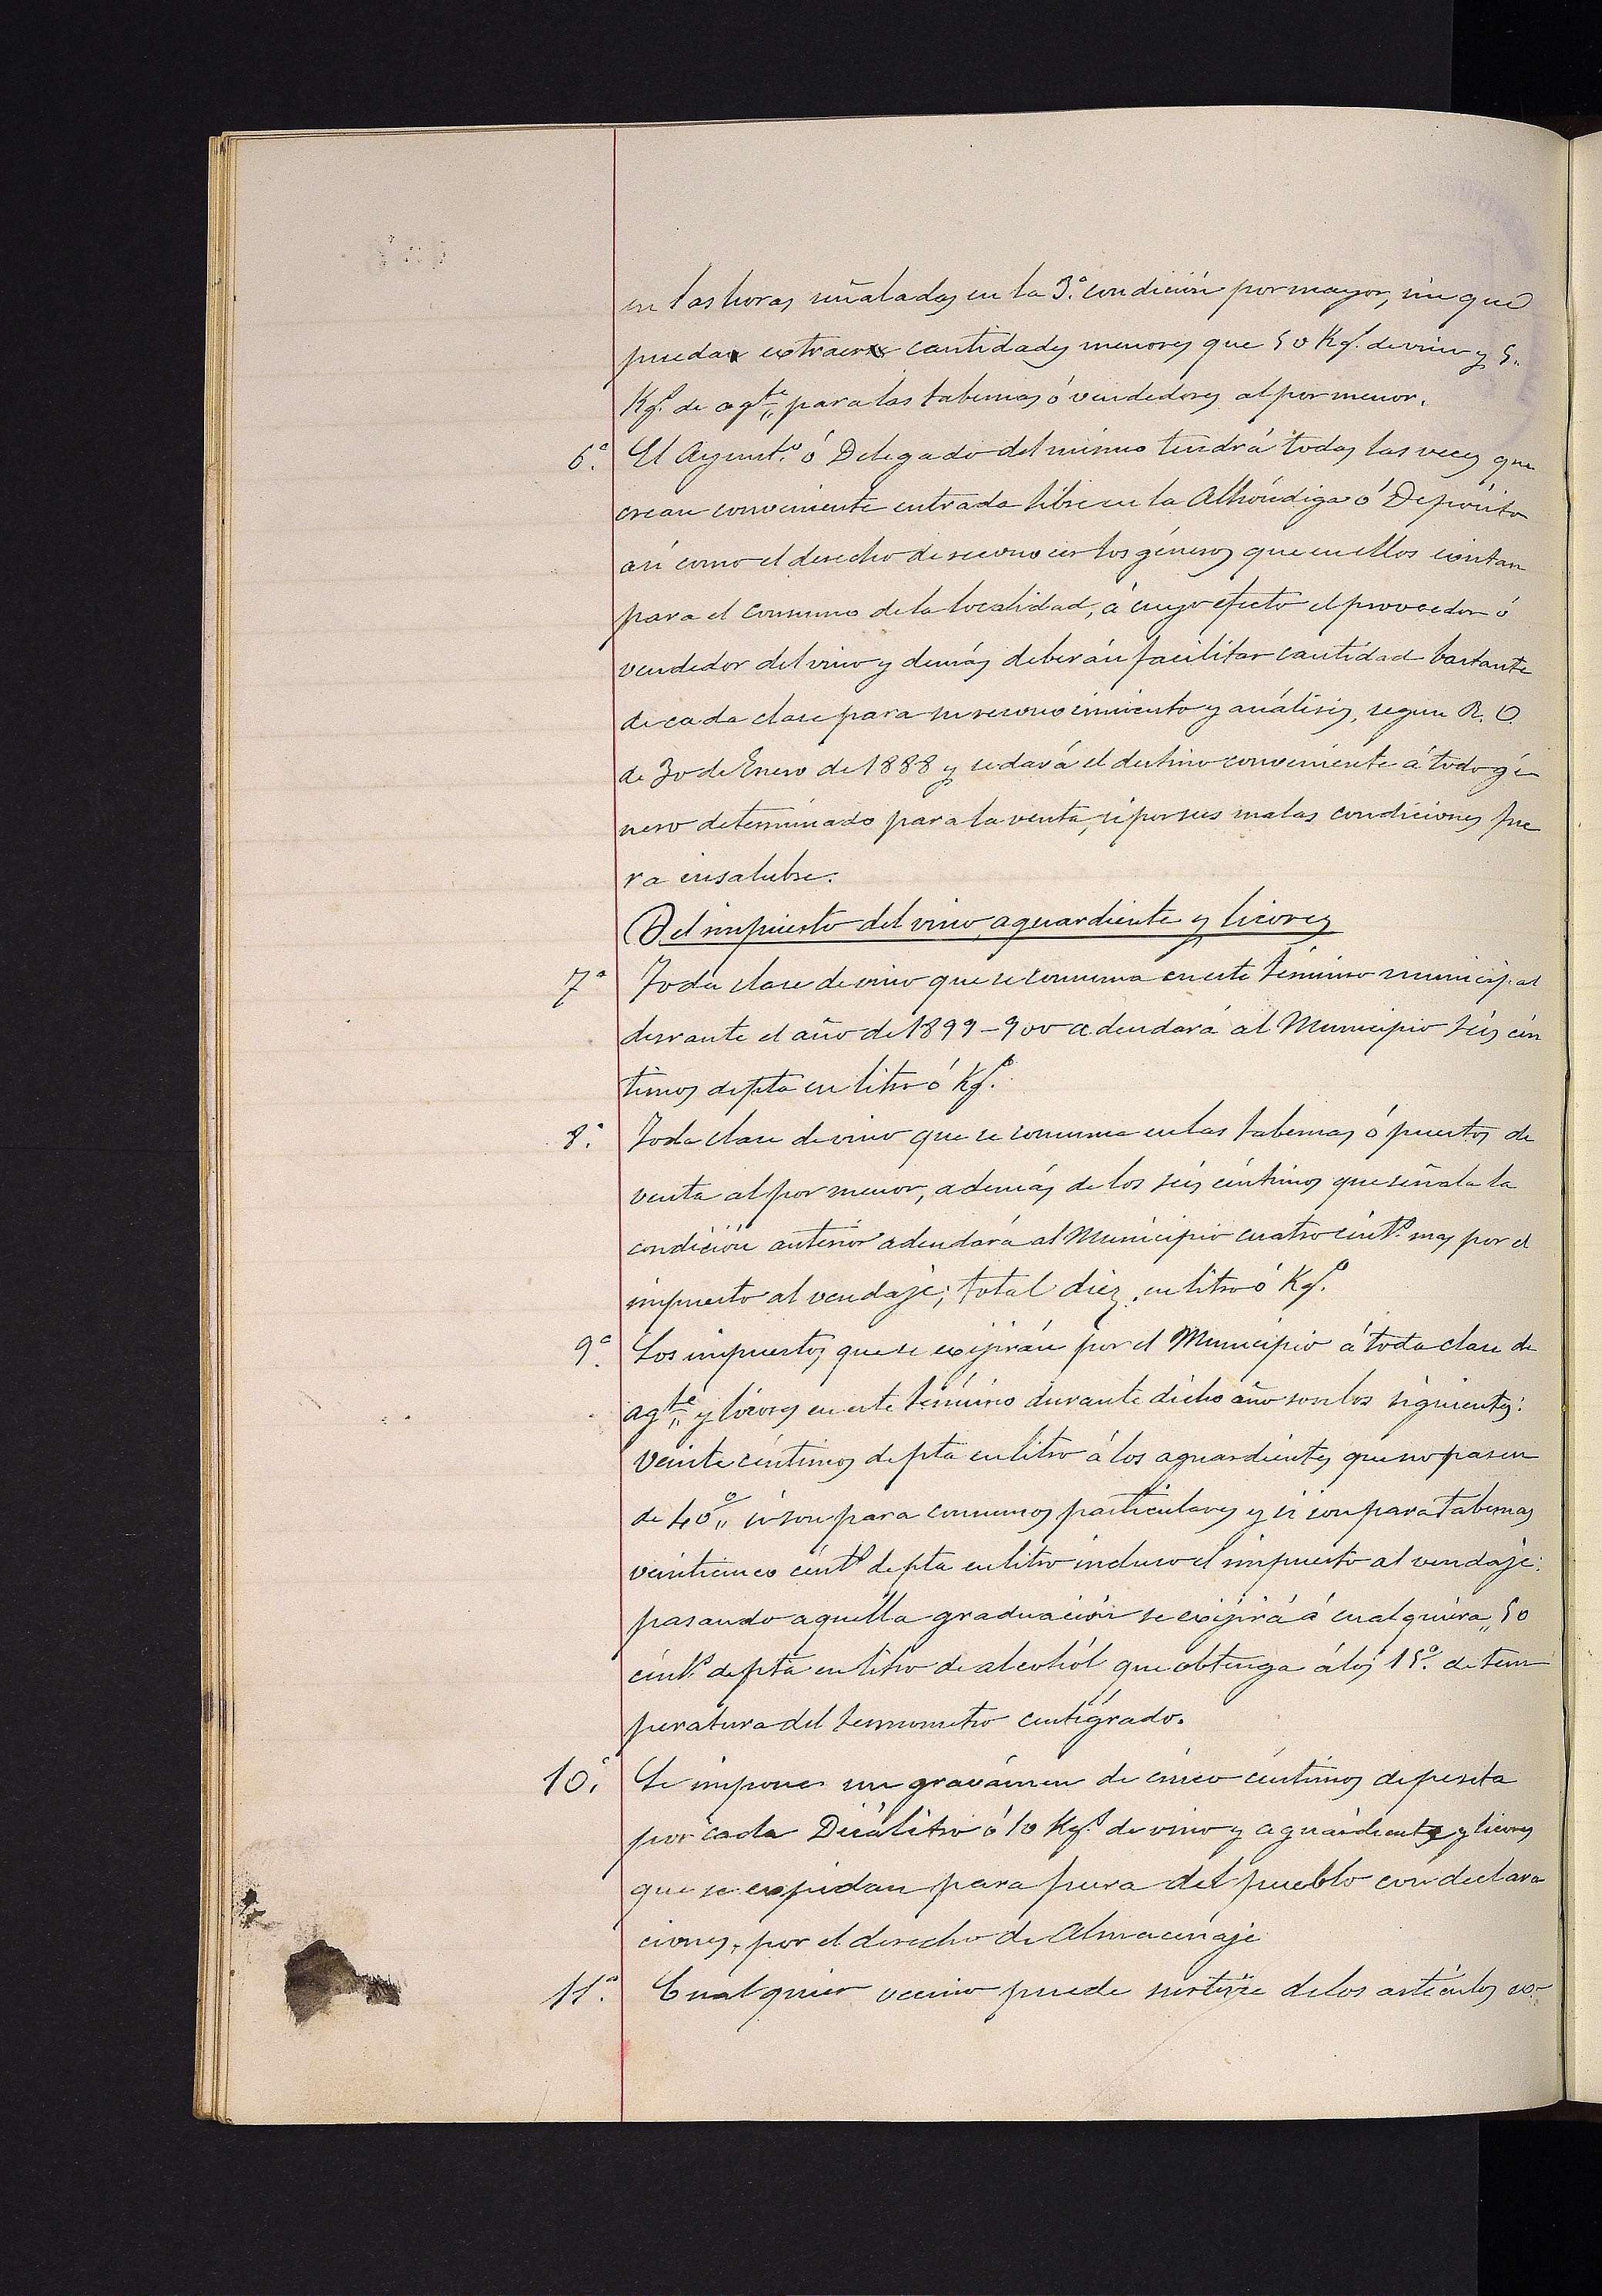 en las horas señaladas en la 3.ª condición por mayor, sin que
puedan extraer cantidades menores que 50 Kgs. de vino y 5.
Kgs. de agte para las tabernas ó vendedores al por menor.
6.ª El Ayunt.º ó Delegado del mismo tendrá todas las veces que
crean conveniente entrada libre en la Alhóndiga ó Depósito
así como el derecho de reconocer los géneros que en ellos existan
para el consumo de la localidad, á cuyo efecto el proveedor ó
vendedor del vino y demás deberán facilitar cantidad bastante
de cada clase para su reconocimiento y análisis, segun R. O.
de 30 de Enero de 1888 y se dará el destino conveniente á todo gé
nero determinado para la venta, si por sus malas condiciones fue
ra insalubre.
Del impuesto del vino, aguardiente y licores
7.ª Toda clase de vino que se consuma en este término municipal
desrante el año de 1899-900 adeudará al Municipio seis cén
timos de pta en litro ó Kgº.
8.ª Toda clase de vino que se consuma en las tabernas ó puestos de
venta al por menor, además de los seis céntimos que señala la
condición anterior adeudará al Municipio cuatro cénts. mas por el
impuesto al vendaje; total diez, en litro ó Kgº.
9.ª Los impuestos que se exijirán por el Municipio á toda clase de
agte y licores en este término durante dicho año son los siguientes:
Veinte céntimos de pta en litro á los aguardientes que no pasen
de 40º si son para consumos particulares y si son para tabernas
veinticinco cénts de pta en litro incluso el impuesto al vendaje:
pasando aquella graduación se exijirá á cualquiera, 50
cénts. de pta en litro de alcohól que obtenga á los 15º. de tem
peratura del termometro centígrado.
10.ª Se impone un gravámen de cinco céntimos de peseta
por cada Decálitro ó 10 Kgs. de vino y aguardiente y licores
que se expidan para fuera del pueblo con declara
ciones, por el derecho de Almacenaje
11.ª Cualquier vecino puede surtirse de los artículos ex-